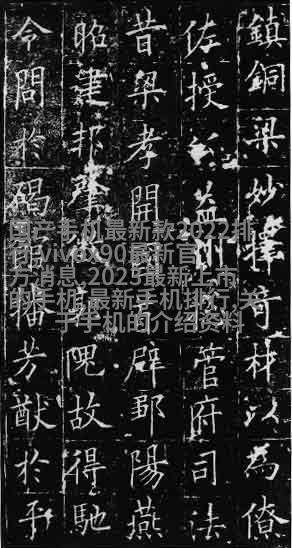 鎮銅梁妙擇奇材以為僚
佐授公益州管府司法
昔梁孝開國首辟鄒陽燕
昭建邦肇隗故得馳
令問於碣館播芳猷於平
国产手机最新款2022排
行,vivox90最新官
方消息,2023最新上市
的手机,最新手机排行,关
于手机的介绍资料